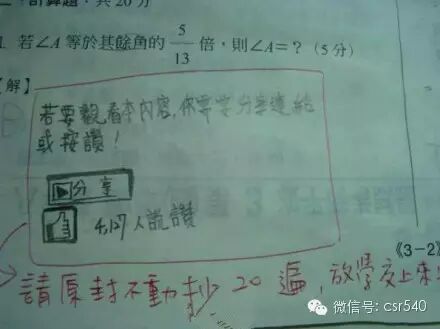 計算題：共 20 分
1. 若∠A 等於其餘角的 5/13 倍，則∠A=？(5分)
【解】
若要觀看本內容,你需要分享連結
或按讚!
分享
4,127人說讚
《3-2》
請原封不動抄20遍,放學交上來
微信号: csr540